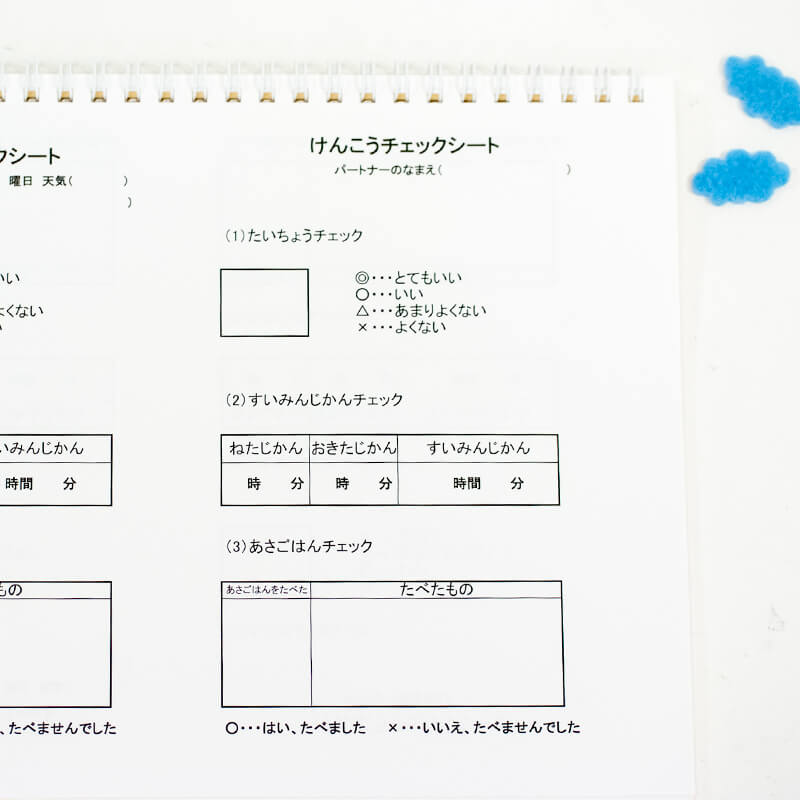 クシート
曜日 天気( )
)
いい
よくない
いみんじかん
時間 分
もの
、たべませんでした
けんこうチェックシート
パートナーのなまえ( )
(1)たいちょうチェック
◎・・・とてもいい
○・・・いい
△・・・あまりよくない
×・・・よくない
(2)すいみんじかんチェック
ねたじかん おきたじかん すいみんじかん
時 分 時 分 時間 分
(3)あさごはんチェック
あさごはんをたべた たべたもの
○・・・はい、たべました ×・・・いいえ、たべませんでした